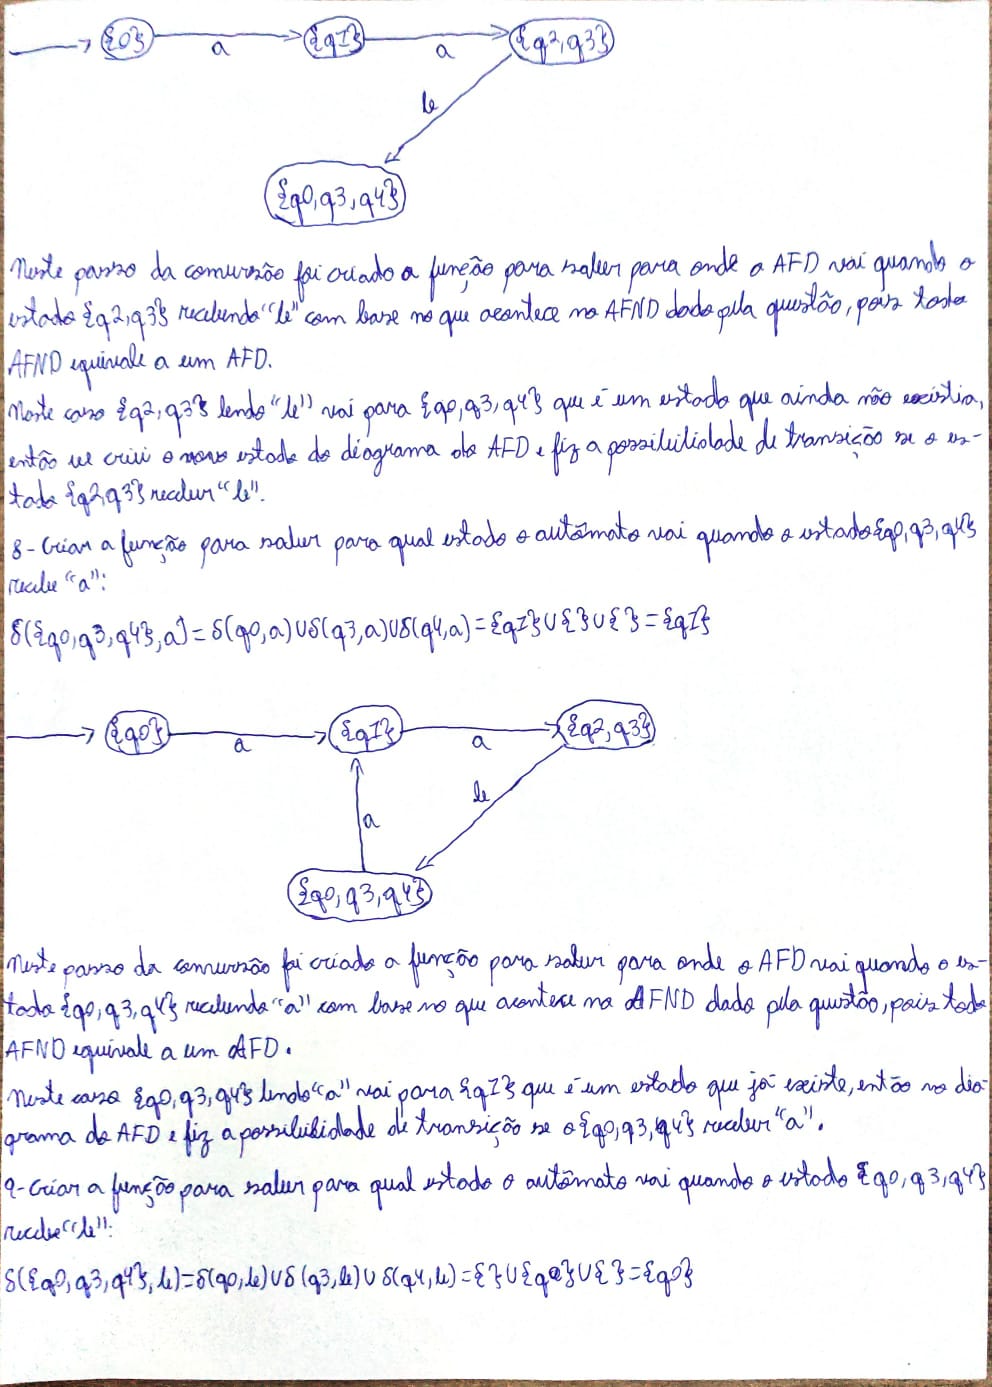 {0} a {q1} a {q2,q3}
b
{q0,q3,q4}
Neste passo da conversão foi criado a função para saber para onde o AFD vai quando o
estado {q2,q3} recebendo "b" com base no que acontece no AFND dado pela questão, pois todo
AFND equivale a um AFD.
Neste caso {q2,q3} lendo "b" vai para {q0,q3,q4} que é um estado que ainda não existia,
então se criei o novo estado do diagrama do AFD e fiz a possibilidade de transição se o es-
tado {q2,q3} receber "b".
8-Criar a função para saber para qual estado o autômato vai quando o estado {q0,q3,q4}
recebe "a":
δ({q0,q3,q4},a)=δ(q0,a)∪δ(q3,a)∪δ(q4,a)={q1}∪{}∪{}={q1}
{q0} a {q1} a {q2,q3}
b
a
{q0,q3,q4}
Neste passo da conversão foi criado a função para saber para onde o AFD vai quando o es-
tado {q0,q3,q4} recebendo "a" com base no que acontece no AFND dado pela questão, pois todo
AFND equivale a um AFD.
Neste caso {q0,q3,q4} lendo "a" vai para {q1} que é um estado que já existe, então no dia-
grama do AFD e fiz a possibilidade de transição se o {q0,q3,q4} receber "a".
9-Criar a função para saber para qual estado o autômato vai quando o estado {q0,q3,q4}
recebe "b":
δ({q0,q3,q4},b)=δ(q0,b)∪δ(q3,b)∪δ(q4,b)={}∪{q0}∪{}={q0}